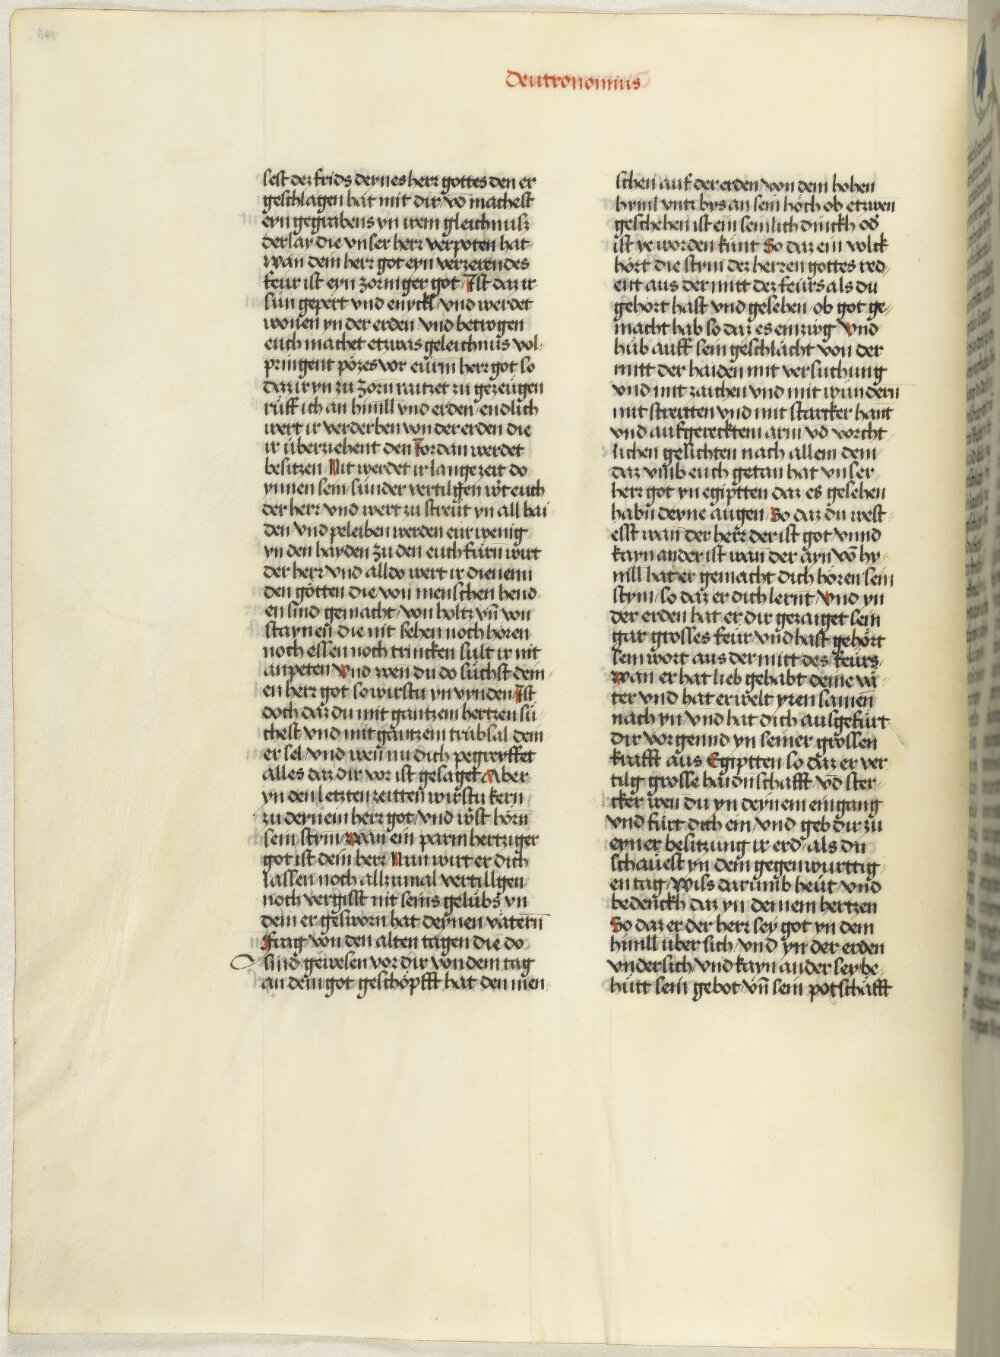 Deutronomius
sest dez frids deynes herr gottes den er
geschlagen hat mit dir vō machest
eyn gegrabens yn irem gleichnusz
derlay die vnser herr verpoten hat
wan dein herr got eyn verzerendes
feur ist eyn zorniger got Ist daz ir
sün gepert vnd enyckl vnd werdet
wonen yn der erden vnd betrogen
euch machet etzwas geleichnüs vol-
pringent pözes vor eurm herr got so
daz ir yn zu zorn raitzet zu gezeügen
rüff ich an himll vnd erden endlich
wert ir verderben von der erden die
ir überziehent den Jordan werdet
besitzen Nit werdet ir lange zeit do
ynnen sein sünder vertilgen wirt euch
der herr vnd wert zu streüt yn all hai-
den vnd peleiben werden eur wenig
yn den hayden zu den euch fürn wirt
der herr vnd alldo wert ir dienenn
den götten die von menschen hend
en sind gemacht von holtz vn̄ von
staynen die nit sehen noch hören
noch essen noch trincken sult ir nit
anpeten vnd wen du do süchst dein-
en herr got so wirstu yn vynden Ist
doch daz du mit gantzem hertzen sü-
chest vnd mit gantzem trübsal dein
er sel vnd wen nu dich pegreyffet
alles daz dir vor ist gesaget Aber
yn den letzten zeitten wirstu kern
zu deynem herr got vnd wirst hörn
sein stym wan ein parmhertziger
got ist dein herr Nun wirt er dich
lassen noch allzumal vertillgen
noch vergisst nit seins gelübs yn
dem er gesworn hat deynen vätern
Frag von den alten tagen die do
sind gewesen vor dir von dem tag
an dem got geschöpfft hat den men-
schen auf der erden von dem hohen
hyml vntz bys an sein höch ob etzwen
geschehen ist ein semlich dinckh od
ist ye worden künt So daz ein volck
hört die stym dez herren gottes red-
ent aus der mitt dez feürs als du
gehort hast vnd gesehen ob got ge-
macht hab so daz es einzwg vnd
hüb auff sein geschlächt von der
mitt der haiden mit versuchung
vnd mit zaichen vnd mit wundern
mit streitten vnd mit starcker hant
vnd aufgerecktem arm vd vorcht
lichen gesichten nach allem dem
daz vmb euch getan hat vnser
herr got yn egiptten daz es gesehen
habn deyne augen So daz du west-
esst wan der herr der ist got vnnd
kayn ander ist wan der ayn vō hy-
mll hat er gemacht dich hören sein
stym so daz er dich lernt vnd yn
der erden hat er dir gezaiget sein
gar grosses feur vnd hast gehört
sein wort aus der mitt des feürs
wan er hat lieb gehabt deine vä-
ter vnd hat erwelt yren samen
nach yn vnd hat dich ausgefürt
dir vorgennd yn seiner grossen
krafft aus Egiptten so daz er ver
tilg grosse haidnschafft vd ster-
cker wen du yn deynem eingang
vnd fürt dich ein vnd geb dir zu
eyner besitzung ir erd als du
schauest yn dem gegenwurttig-
en tag Wiss darumb heüt vnd
bedenckh daz yn deinem hertzen
So daz er der herr sey got yn dem
himll über sich vnd yn der erden
vndersich vnd kayn ander sey be-
hütt sein gebot vn̄ sein potschafft